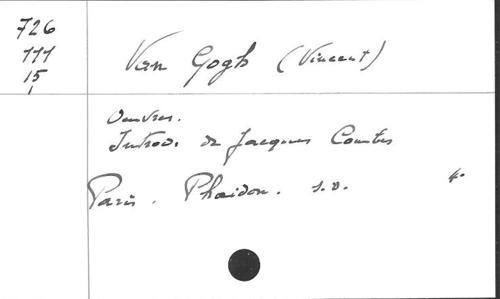 726
777
15
Van Gogh (Vincent)
Oeuvres.
Introd. de Jacques Combes
Paris. Phaidon. s.d. 4º